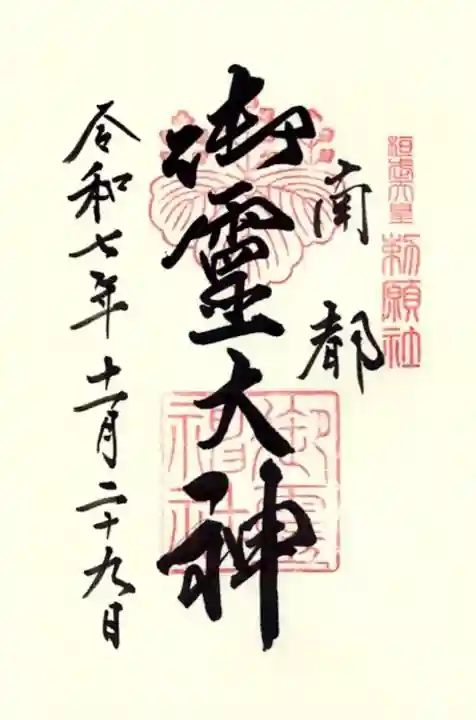 勅願社
南都
御霊大神
御靈神社
令和七年十一月二十九日